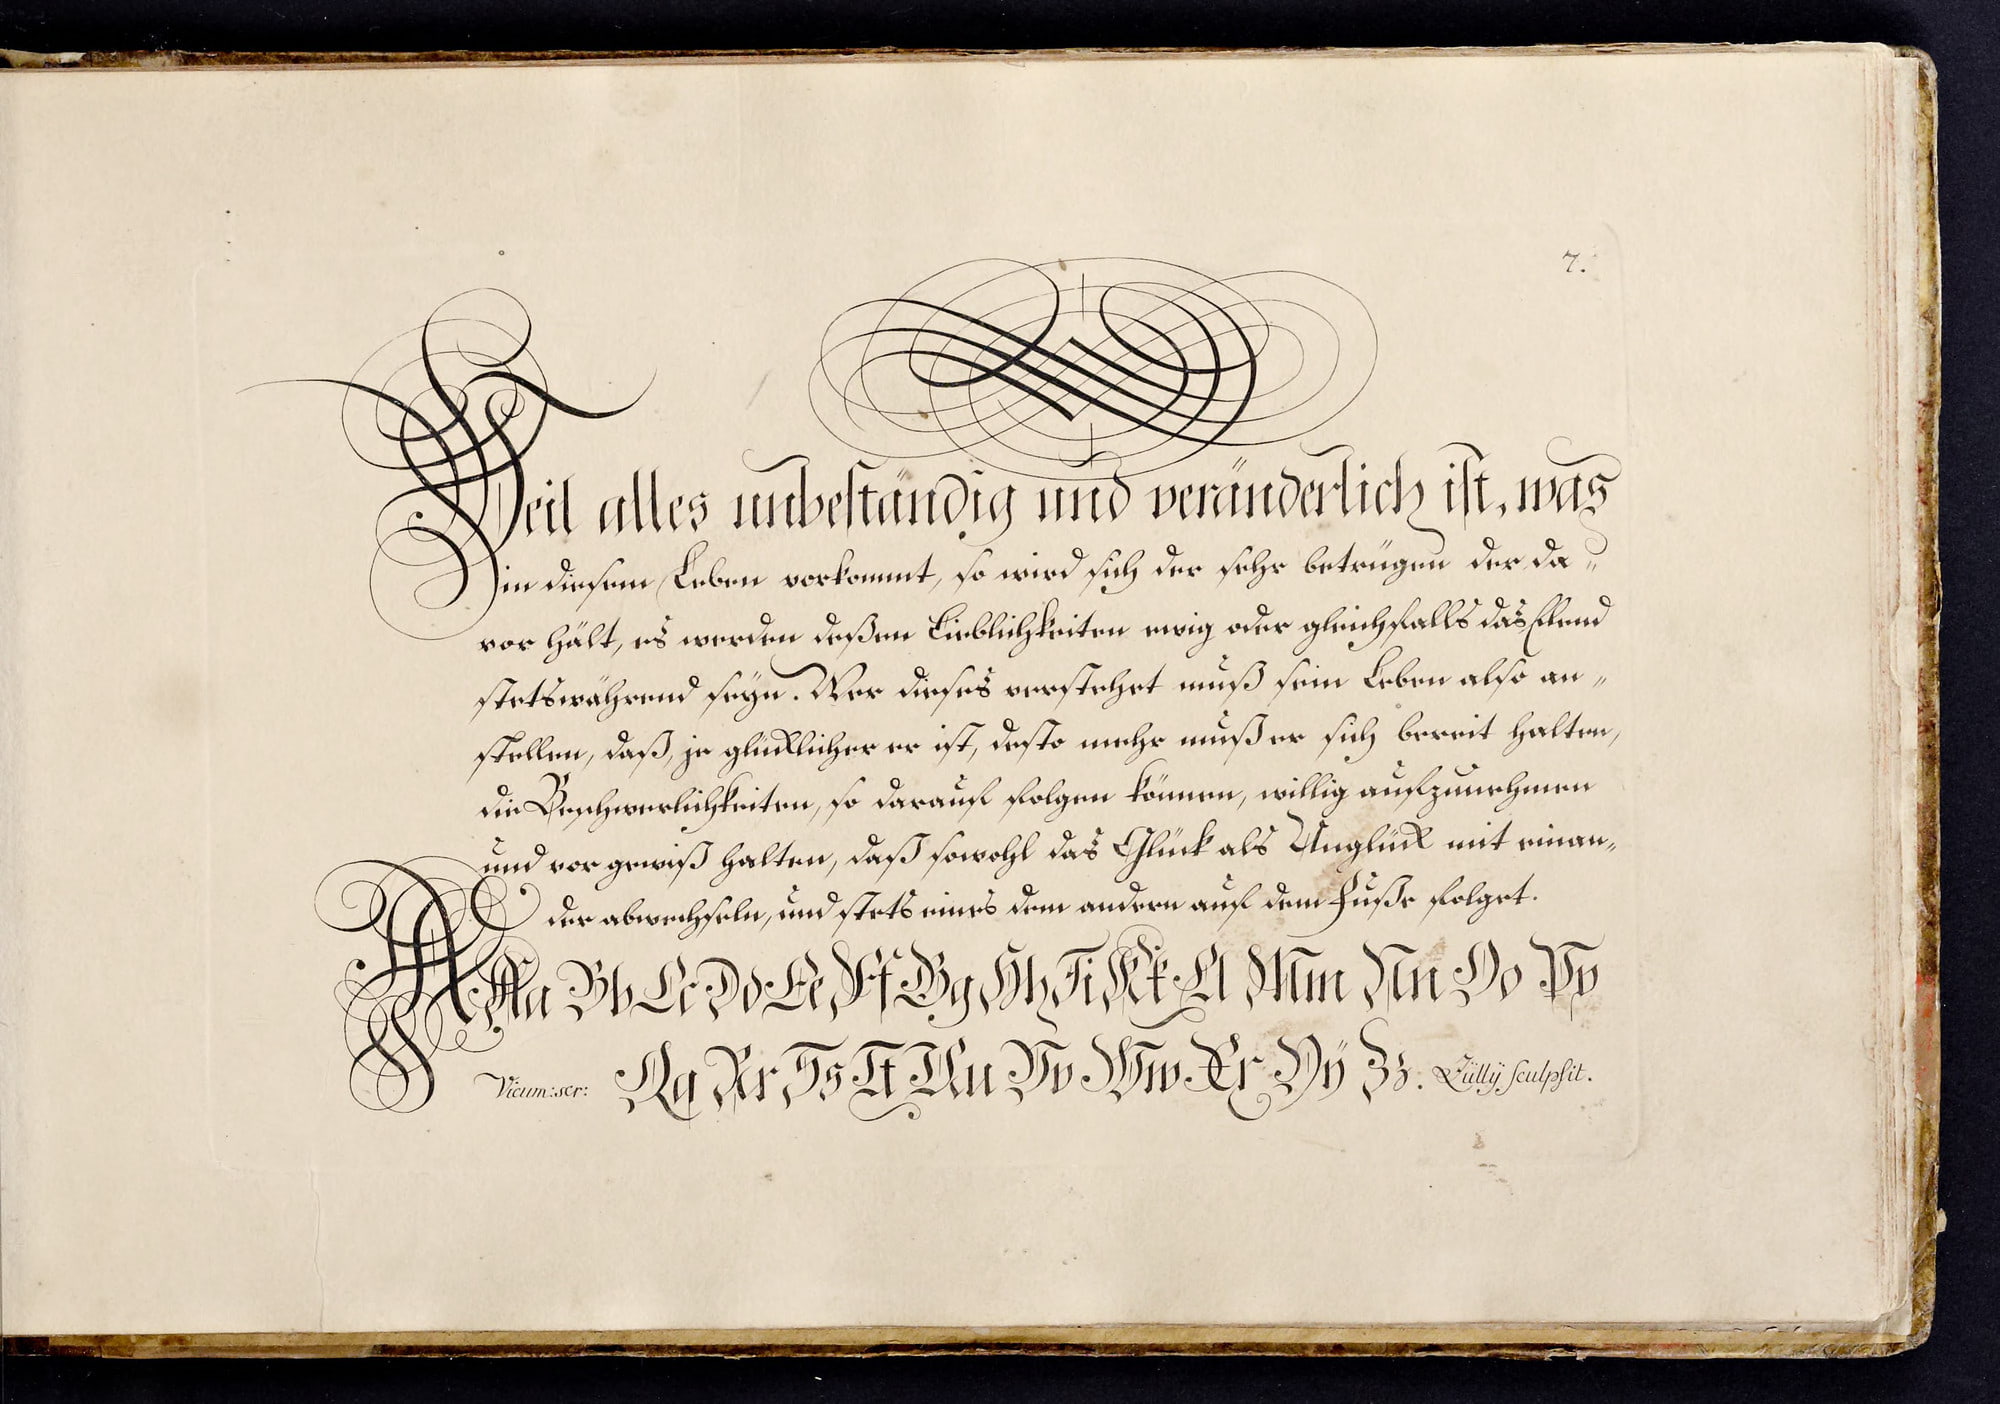 7.
Weil alles unbeständig und veränderlich ist, was
in diesem Leben vorkommt, so wird sich der sehr betrügen der da„
vor hält, es werden deßen Lieblichkeiten ewig oder gleichfalls das Elend
stetswährend seyn. Wer dieses verstehet muß sein Leben also an„
stellen, daß, je glücklicher er ist, desto mehr muß er sich bereit halten,
die Beschwerlichkeiten, so darauf folgen können, willig aufzunehmen
und vor gewiß halten, daß sowohl das Glück als Unglück mit einan„
der abwechseln, und stets eines dem andern auf dem Fuße folget.
A Aa Bb Cc Dd Ee Ff Gg Hh Ii Kk Ll Mm Nn Oo Pp
Vicum: scr: Qq Rr Ss Tt Uu Vv Ww Xx Yÿ Zz. Lüllÿ sculpsit.